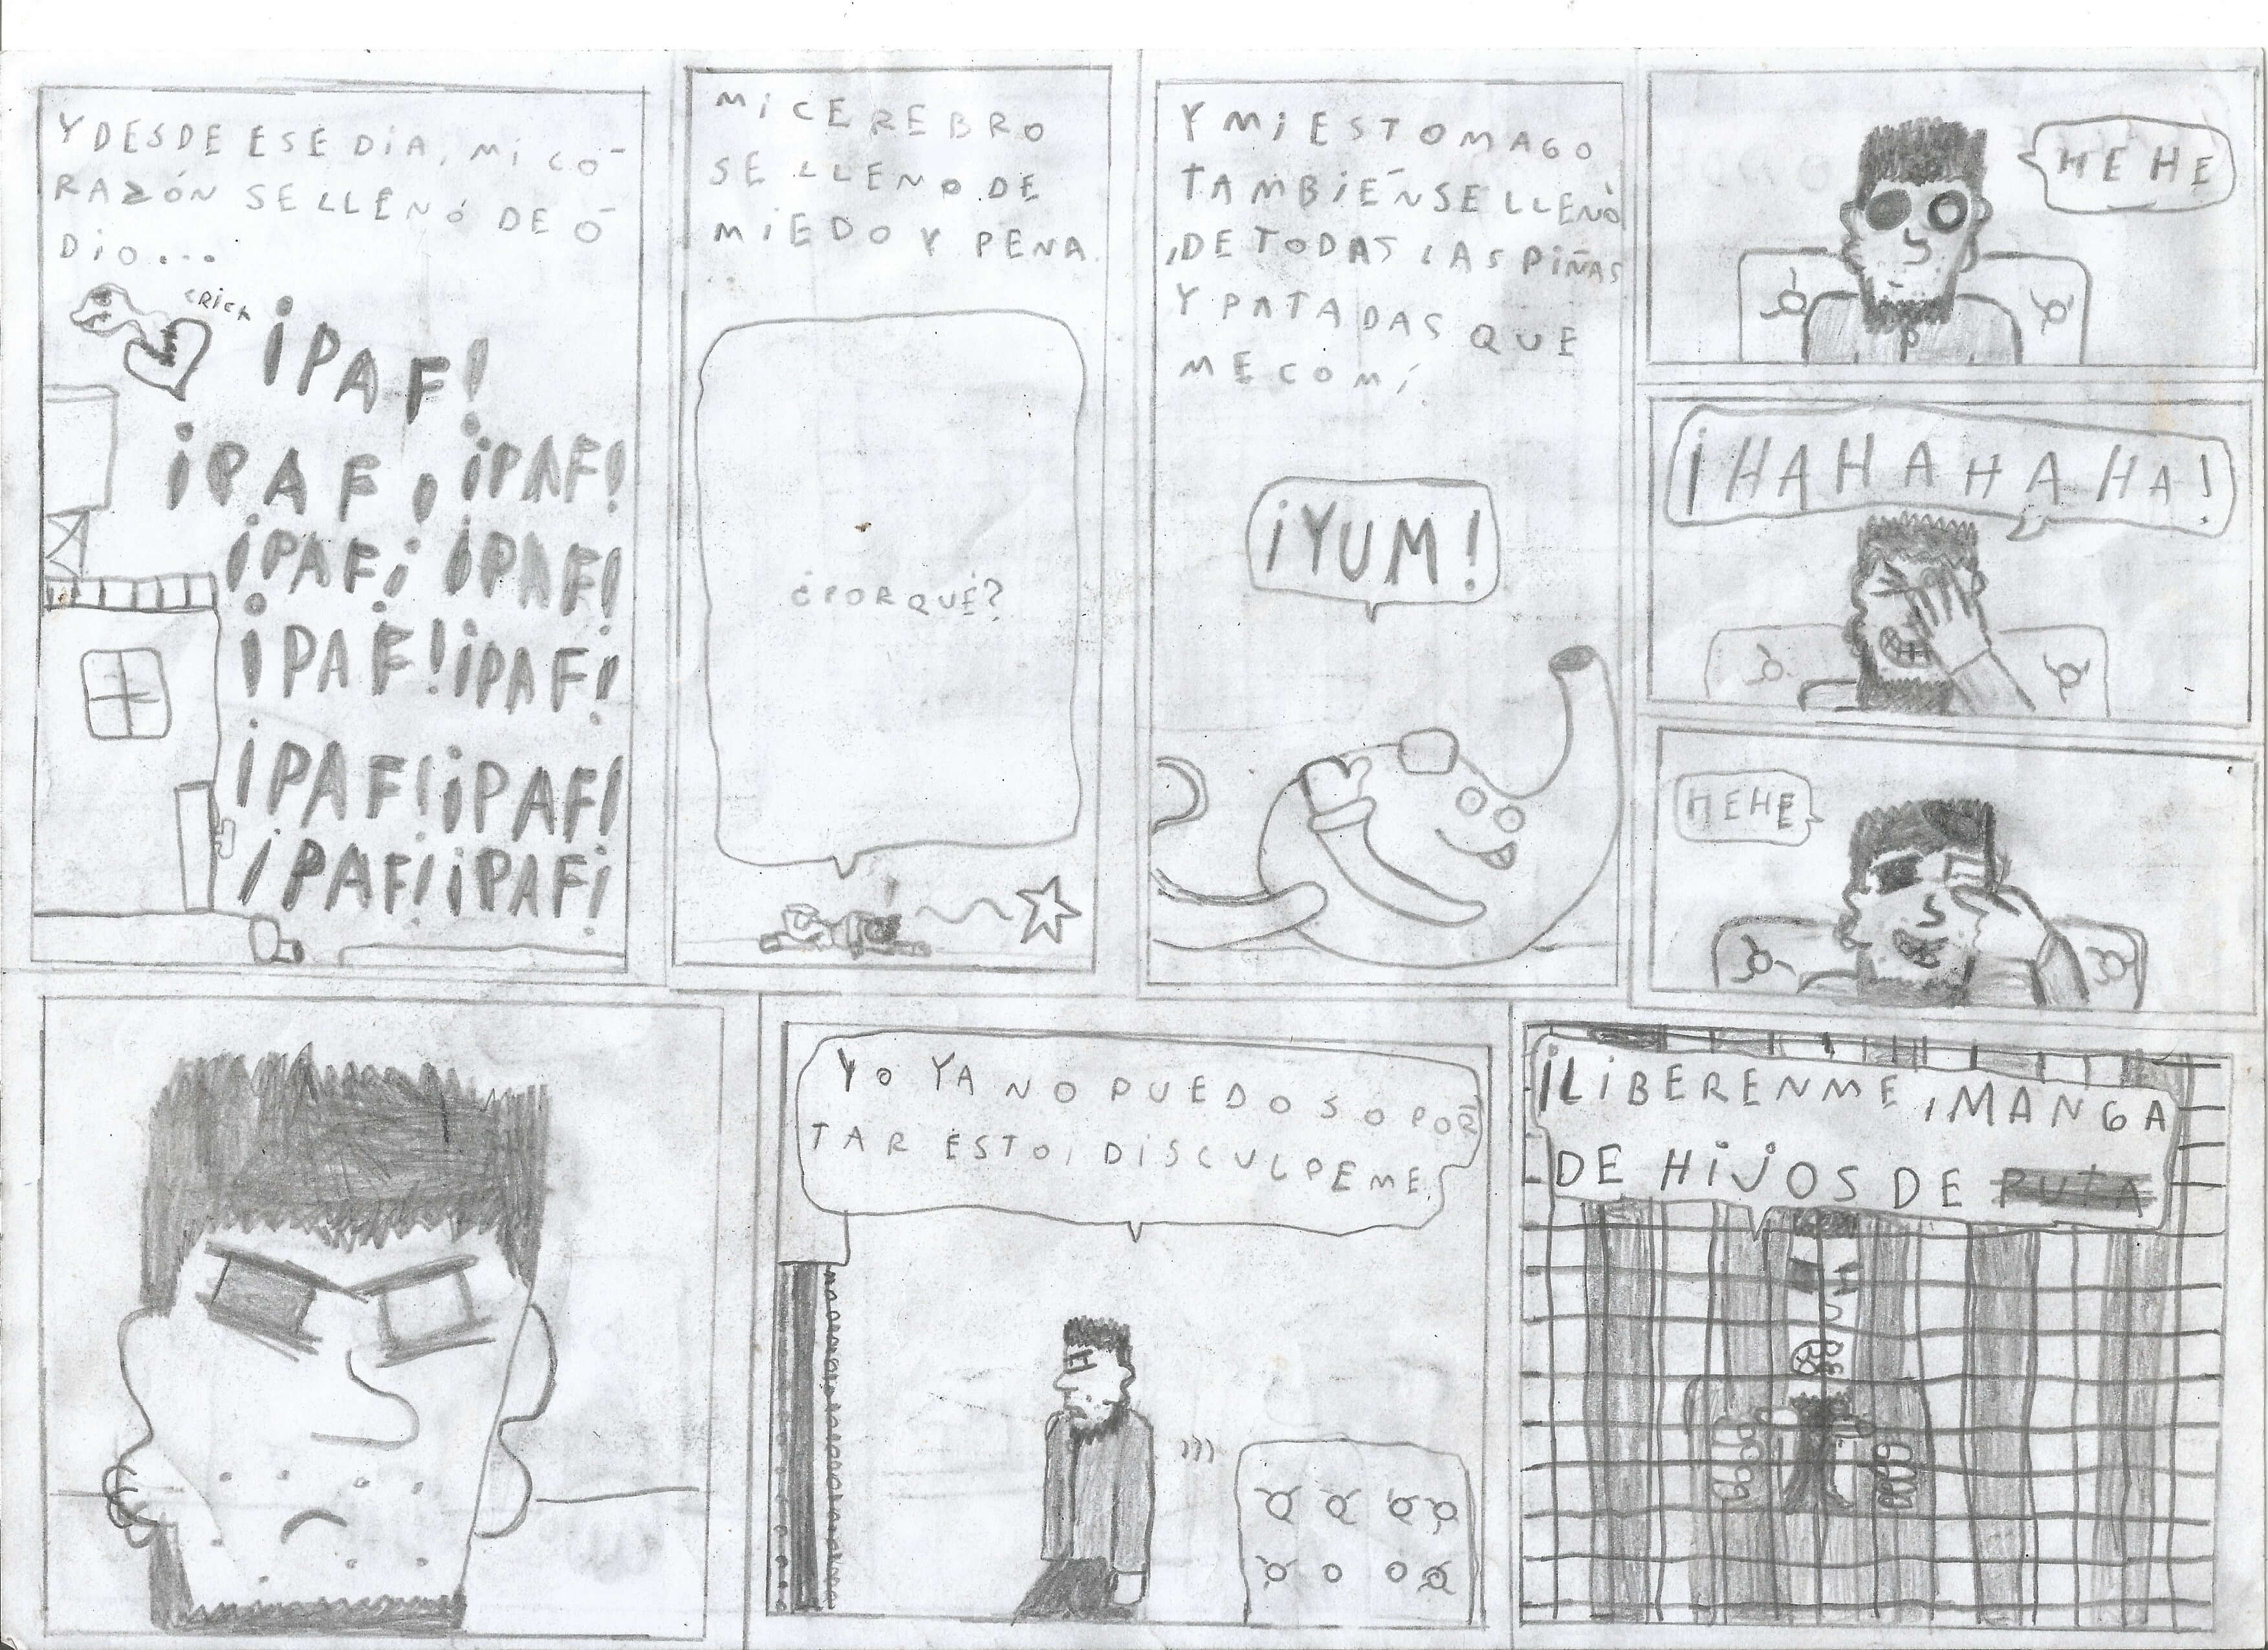 Y DESDE ESE DÍA, MI CO-
RAZÓN SE LLENÓ DE O-
DIO...
CRICK
¡PAF!
¡PAF! ¡PAF!
¡PAF! ¡PAF!
¡PAF! ¡PAF!
¡PAF! ¡PAF!
¡PAF! ¡PAF!
MI CEREBRO
SE LLENO DE
MIEDO Y PENA
..
¿PORQUÉ?
Y MI ESTOMAGO
TAMBIÉN SE LLENÓ
,DE TODAS LAS PIÑAS
Y PATADAS QUE
ME COMÍ.
¡YUM!
HE HE
¡HAHAHAHA!
HEHE
YO YA NO PUEDO SOPOR-
TAR ESTO, DISCULPEME.
¡LIBERENME, MANGA
DE HIJOS DE PUTA